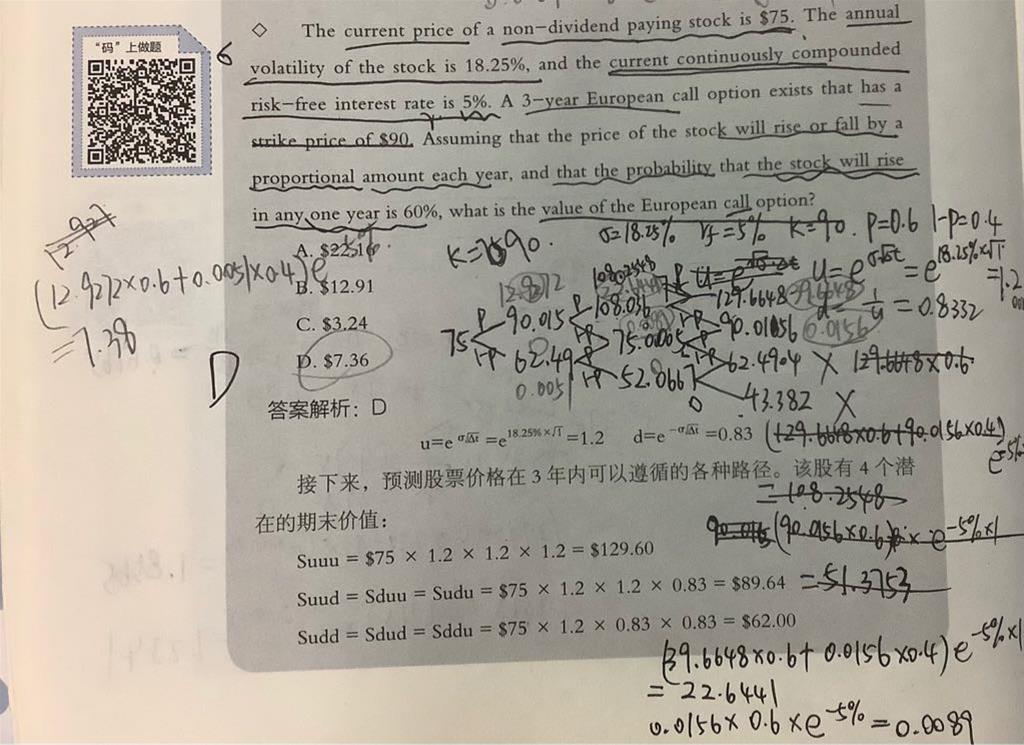 “码”上做题
6
◇ The current price of a non-dividend paying stock is $75. The annual
volatility of the stock is 18.25%, and the current continuously compounded
risk-free interest rate is 5%. A 3-year European call option exists that has a
strike price of $90. Assuming that the price of the stock will rise or fall by a
proportional amount each year, and that the probability that the stock will rise
in any one year is 60%, what is the value of the European call option?
σ=18.25% rf=5% K=90. P=0.6 1-P=0.4
A. $22.16
K=90.
B. $12.91
C. $3.24
D. $7.36
12.927
(12.9272×0.6+0.0051×0.4)e
=7.38
D
u=e^σ√Δt =e^18.25%×√1 =1.2
d=1/u=0.8332
12.9272
108.2548
75
P
1-P
90.015
62.49
0.0051
108.036
75.0005
52.0667
0
129.6648
90.0156
0.0156
62.4904 X
43.382 X
129.6648×0.6
答案解析：D
u=e^σ√Δt=e^18.25%×√1=1.2 d=e^-σ√Δt=0.83
(129.6648×0.6+90.0156×0.4)
e^-5%
=108.2548
接下来，预测股票价格在 3 年内可以遵循的各种路径。该股有 4 个潜
在的期末价值：
90.016 (90.0156×0.6) × e^-5%×1
Suuu = $75 × 1.2 × 1.2 × 1.2 = $129.60
Suud = Sduu = Sudu = $75 × 1.2 × 1.2 × 0.83 = $89.64
=51.3753
Sudd = Sdud = Sddu = $75 × 1.2 × 0.83 × 0.83 = $62.00
(39.6648×0.6+0.0156×0.4)e^-5%×1
=22.6441
0.0156×0.6×e^-5%=0.0089